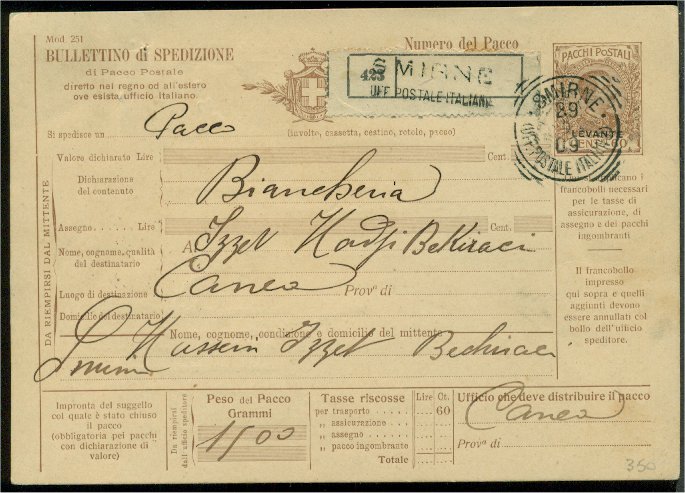 Mod. 251
BULLETTINO di SPEDIZIONE
di Pacco Postale
diretto nel regno od all'estero
ove esista ufficio Italiano.
Numero del Pacco
423 SMIRNE
UFF. POSTALE ITALIANE
PACCHI POSTALI
LEVANTE
CENT. 60
SMIRNE
29
09
UFF. POSTALE ITALIANE
Si spedisce un Pacco (involto, cassetta, cestino, rotolo, pacco)
DA RIEMPIRSI DAL MITTENTE
Valore dichiarato Lire Cent.
Dichiarazione
del contenuto
Biancheria
Assegno - Lire Cent.
Nome, cognome, qualità
del destinatario
A Izzet Hadji Bekiraci
Luogo di destinazione Canea Prov.ª di
Domicilio del destinatario
Nome, cognome, condizione e domicilio del mittente
Hussein Izzet Bechiraci
Smirne
indicano i
francobolli necessari
per le tasse di
assicurazione, di
assegno e dei pacchi
ingombranti
Il francobollo
impresso
qui sopra e quelli
aggiunti devono
essere annullati col
bollo dell'ufficio
speditore.
Impronta del suggello
col quale è stato chiuso
il pacco
(obbligatoria pei pacchi
con dichiarazione di
valore)
Da riempirsi
dall'uff. speditore
Peso del Pacco
Grammi
1500
Tasse riscosse Lire Ct.
per trasporto 60
„ assicurazione
„ assegno
„ pacco ingombrante
Totale
Ufficio che deve distribuire il pacco
Canea
Prov.ª di
350